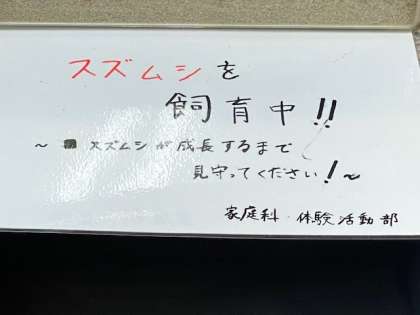 スズムシを
飼育中!!
~ スズムシが成長するまで
見守ってください!~
家庭科・体験活動部